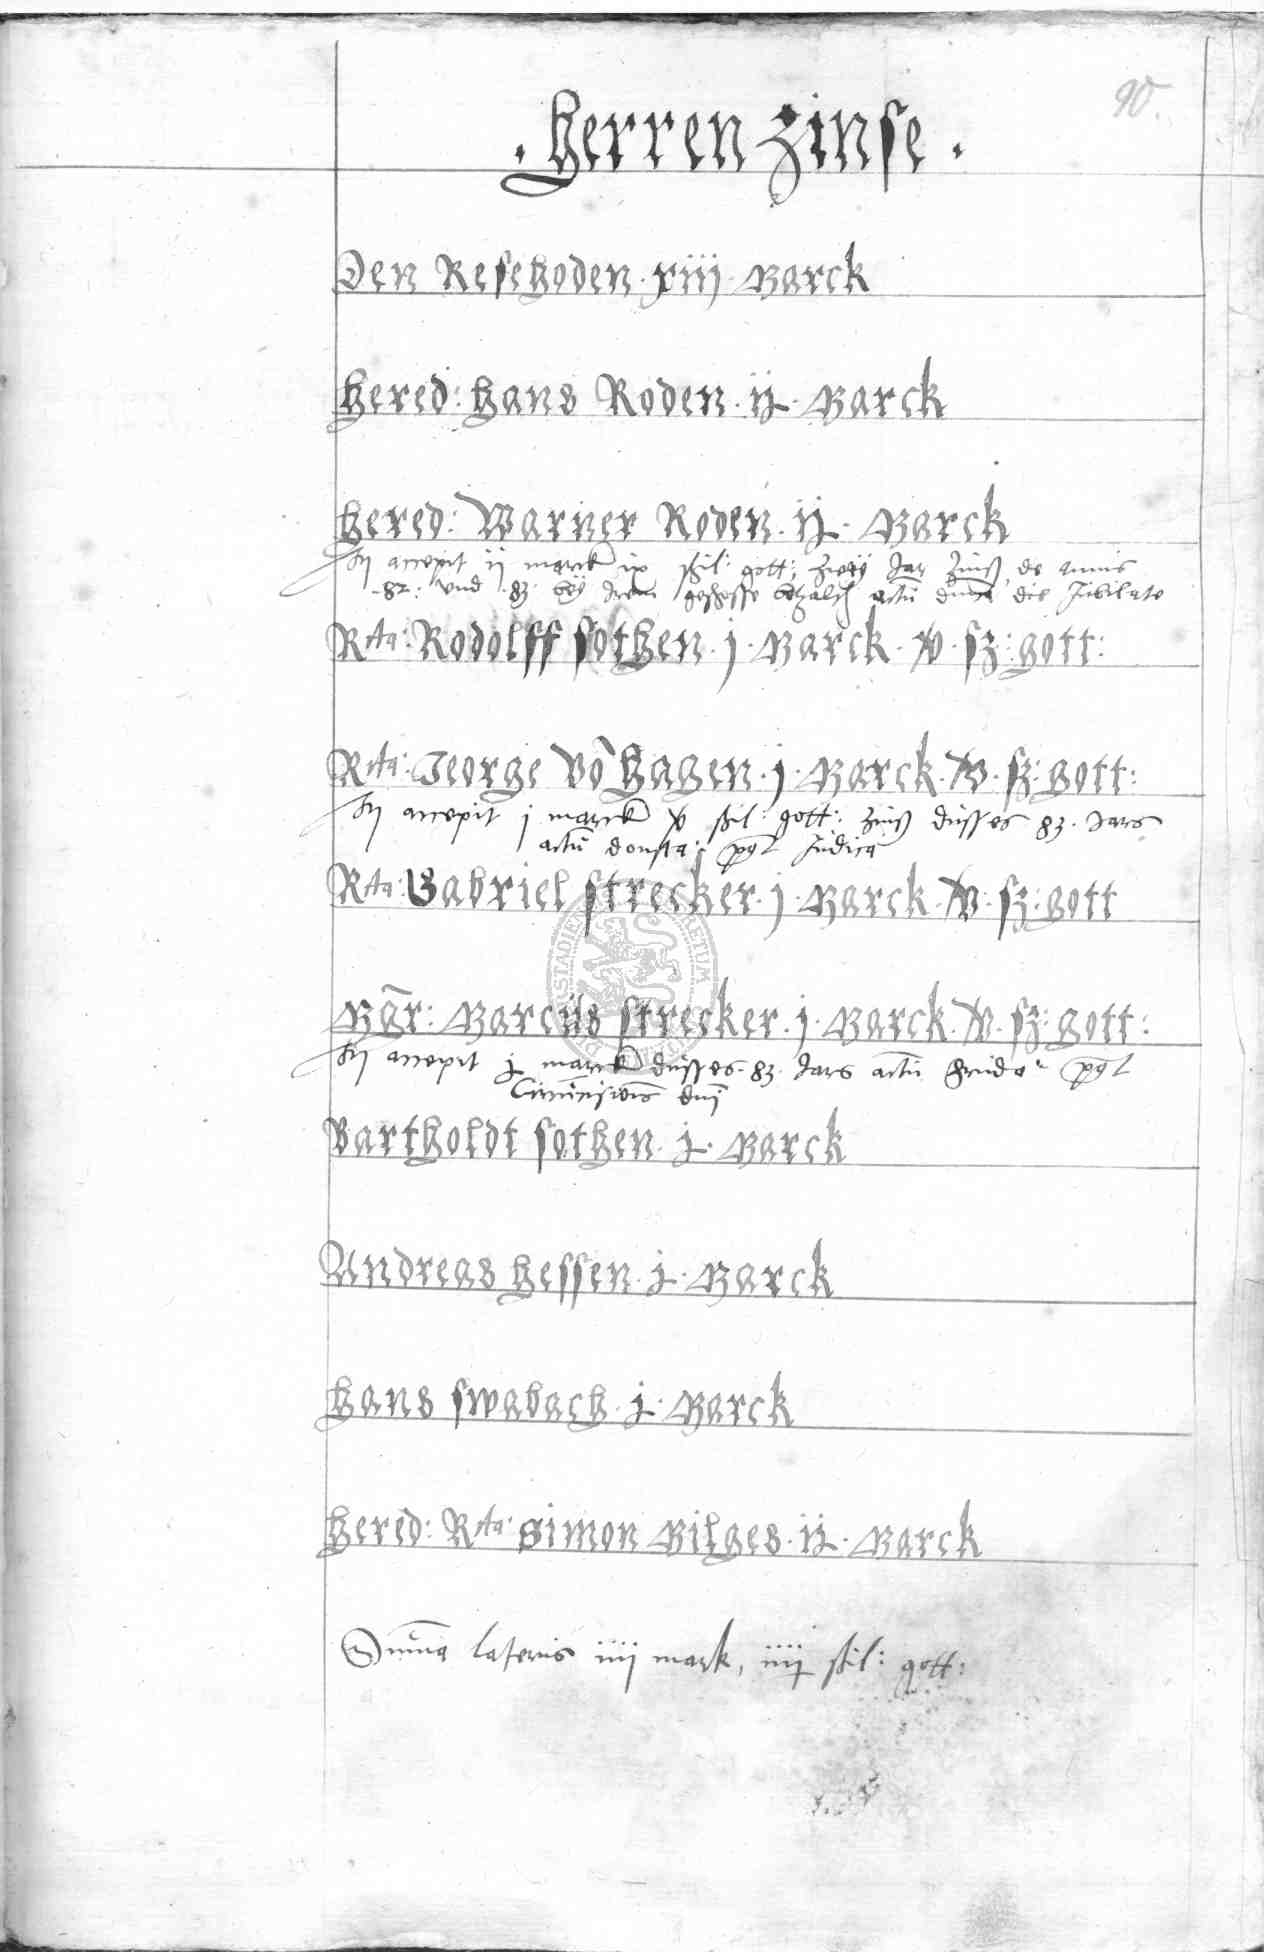 90.
. Herren Zinse .
Den Resehoden . xiij . Marck
Hered: Hans Roden . ij . Marck
Hered: Warner Roden . ij . Marck
accepit ij marck ix ßil: gott: zweÿ Jar Zinß de annis
82: vnd 83 beÿ Irem geschosse bezalt actū die Jubilate
Rta: Rodolff Sothen . j . Marck . v . sz: gott:
Rta: George Vō Hagen . j . Marck . v . sz: gott:
accepit j marck v ßil: gott: Zinß disses 83. Jars
actū donsta: Judica
Rta: Gabriel Strecker . j . Marck . v . sz: gott
Mgr: Marcus Strecker . j . Marck . v . sz: gott:
accepit j marck disses 83. Jars actū
Circūcisiōis dnī
Bartholdt Sothen . j . Marck
Andreas Hessen . j . Marck
Hans Swabach . j . Marck
Hered: Rta: Simon Bilges . ij . Marck
Sūma lateris iiij mark, iiij ßil: gott: